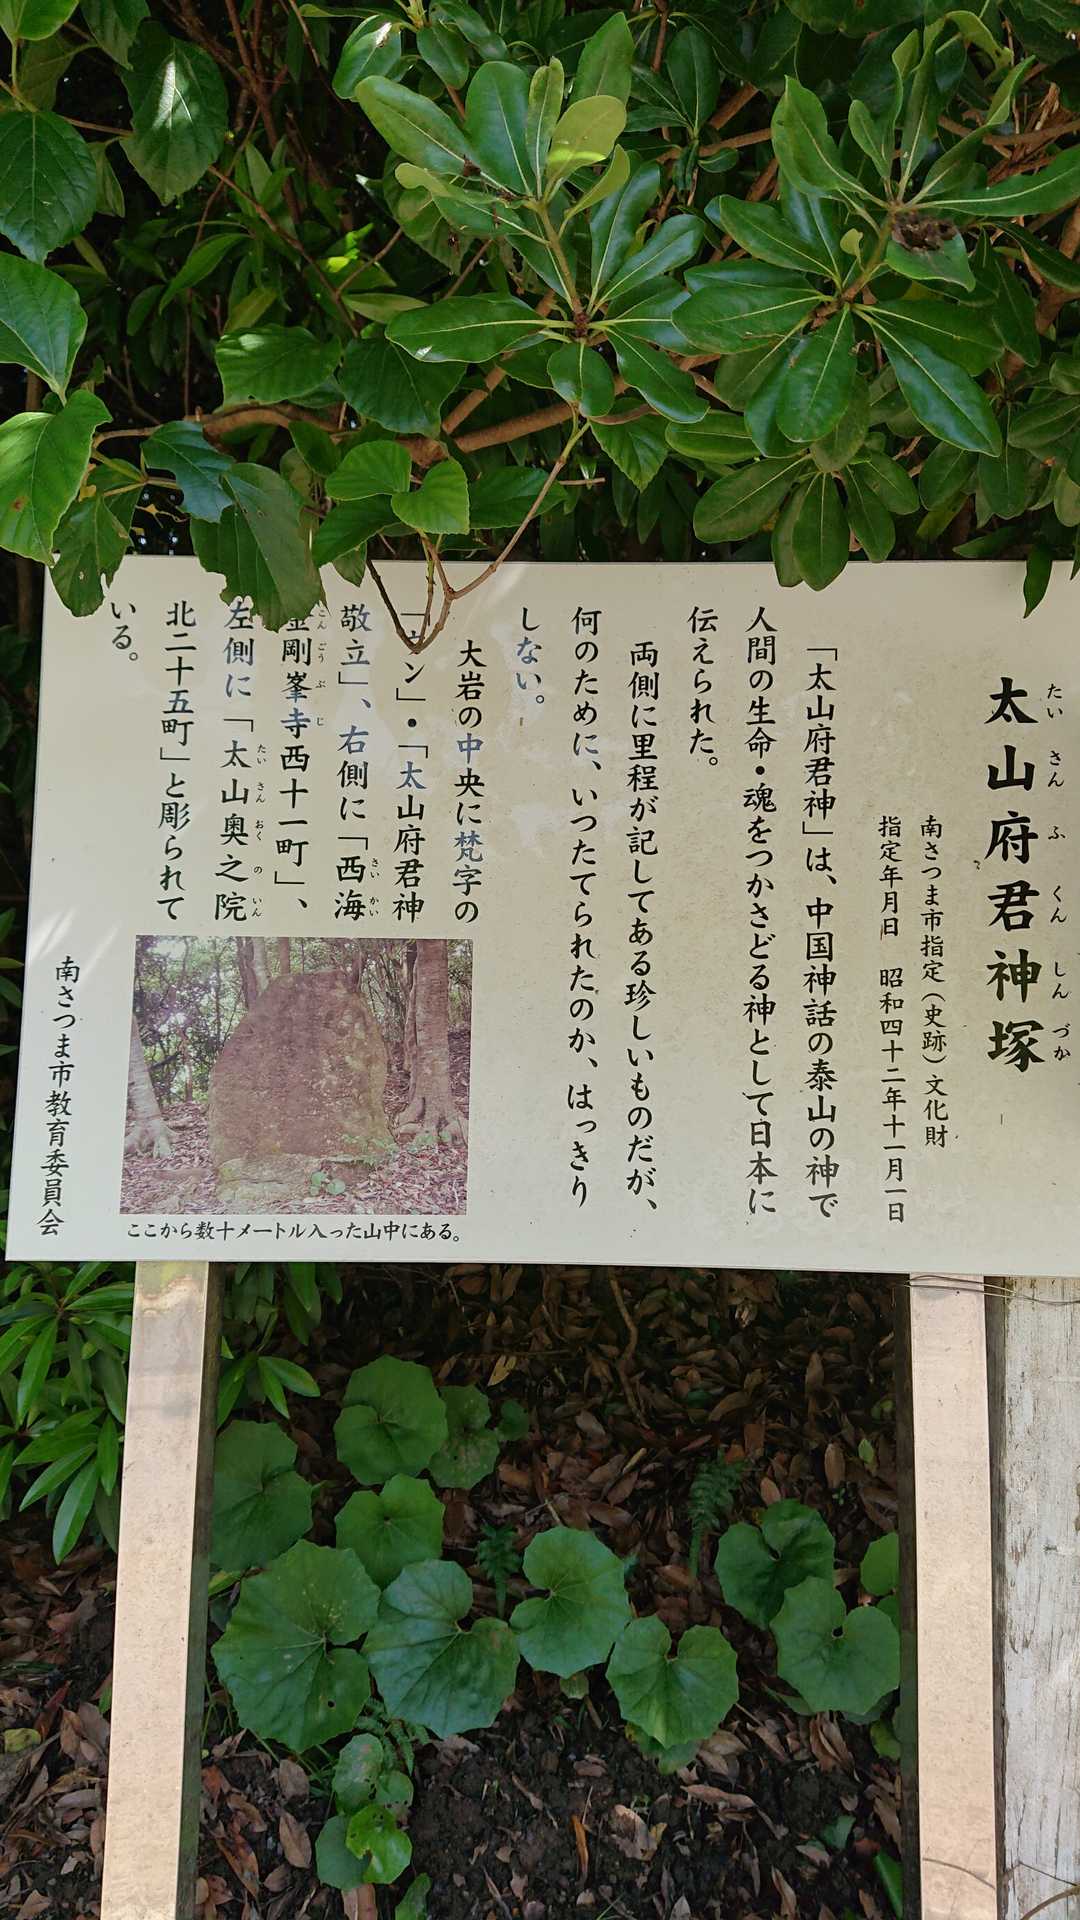 太山府君神塚
たいさんふくんしんづか
南さつま市指定（史跡）文化財
指定年月日　昭和四十二年十一月一日
「太山府君神」は、中国神話の泰山の神で
人間の生命・魂をつかさどる神として日本に
伝えられた。
両側に里程が記してある珍しいものだが、
何のために、いつたてられたのか、はっきり
しない。
大岩の中央に梵字の
ン」・「太山府君神
敬立」、右側に「西海
さいかい
金剛峯寺西十一町」、
こんごうぶじ
左側に「太山奥之院
たいさんおくのいん
北二十五町」と彫られて
いる。
ここから数十メートル入った山中にある。
南さつま市教育委員会